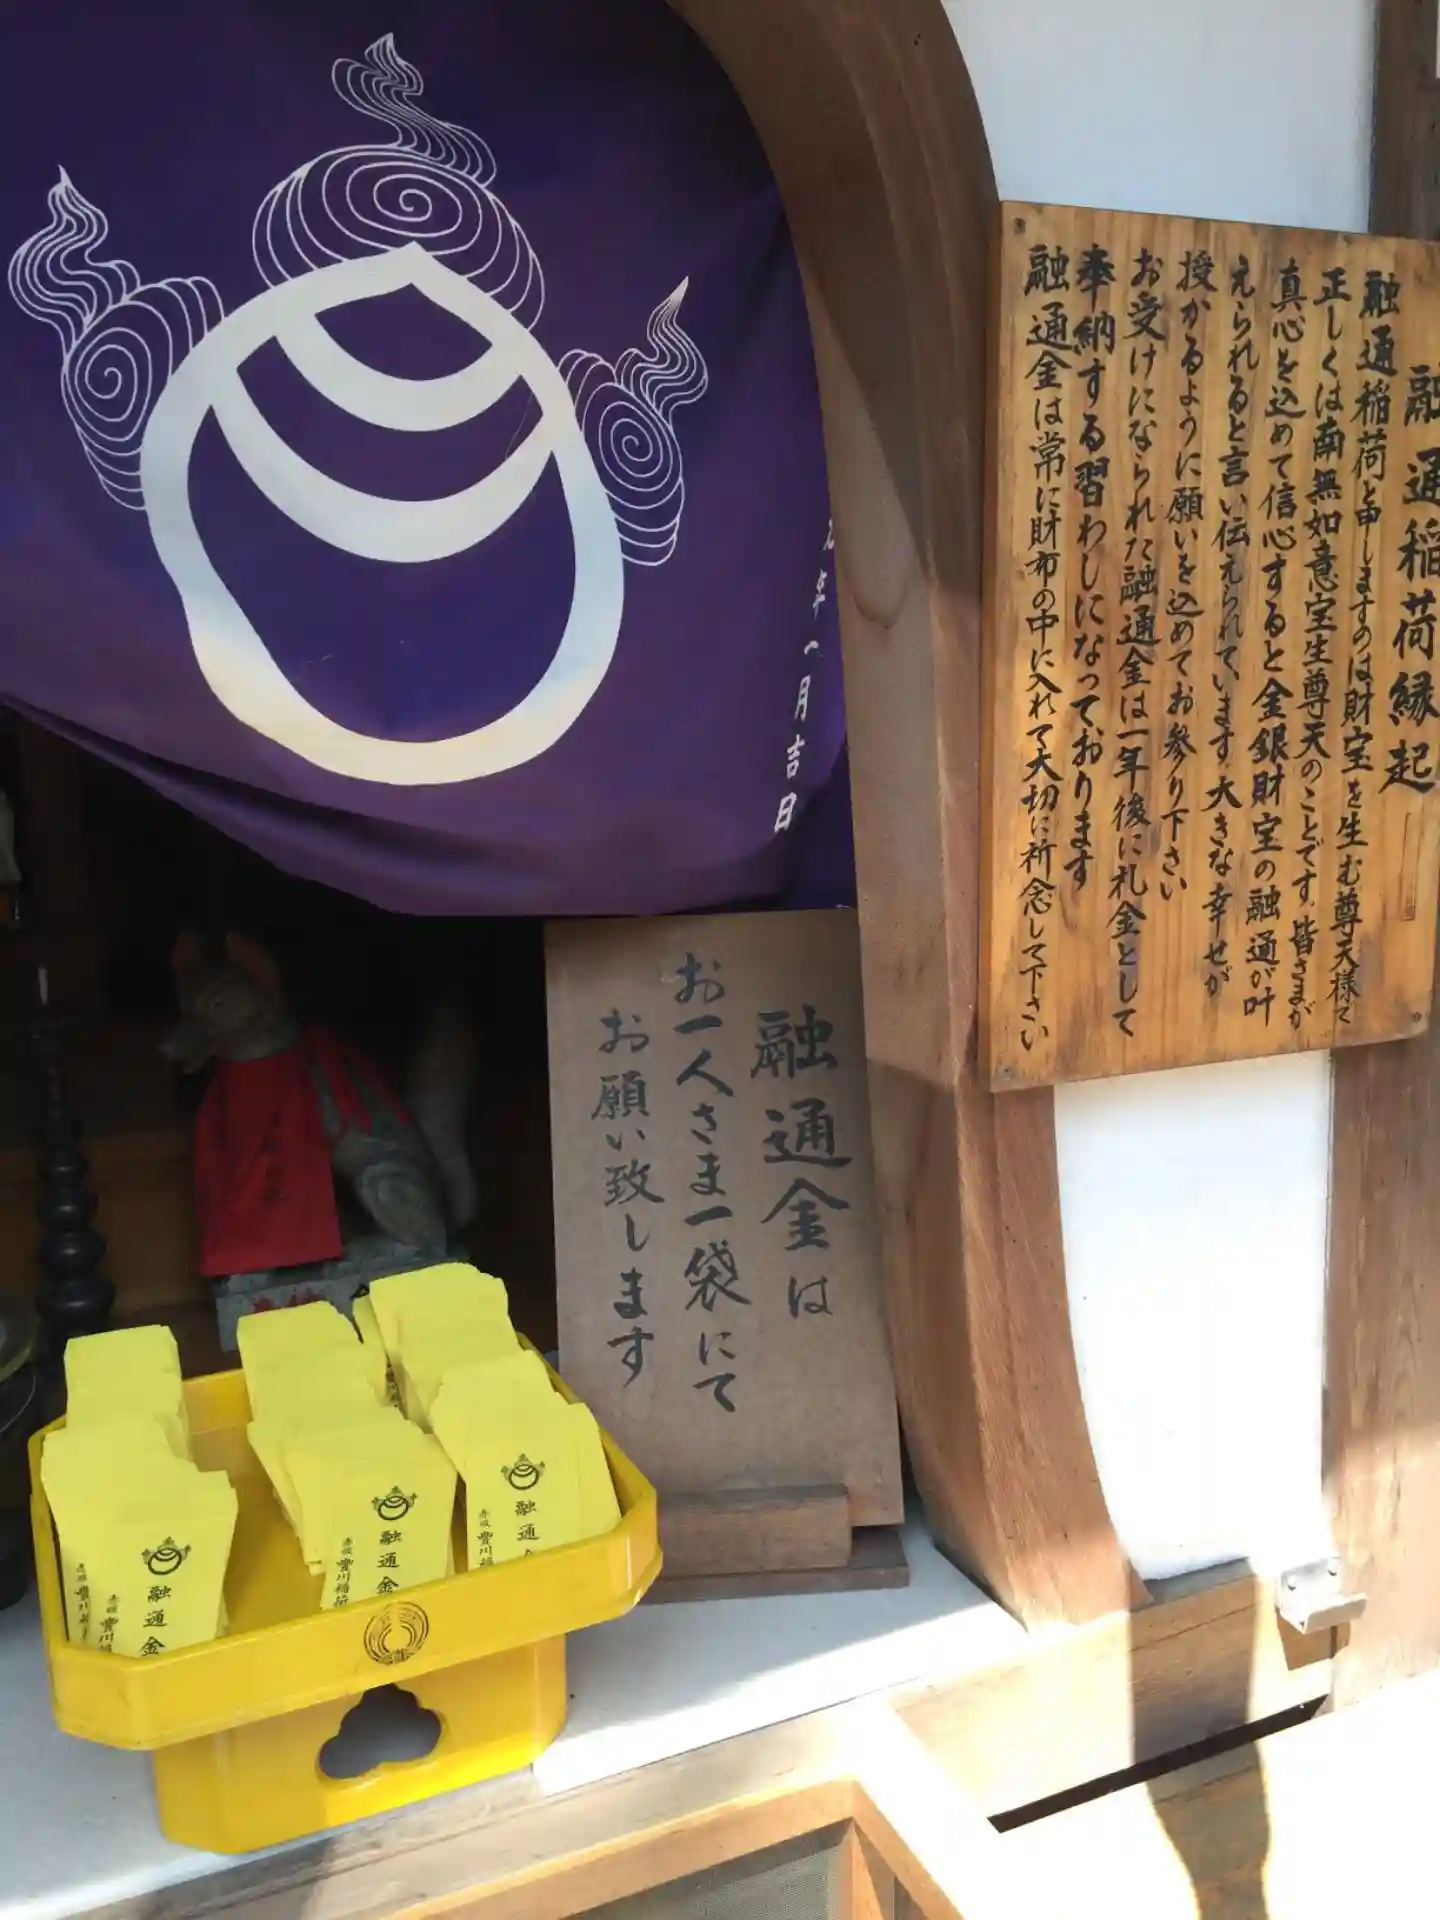 融通稲荷縁起
融通稲荷と申しますのは財宝を生む尊天様で
正しくは南無如意宝生尊天のことです。皆さまが
真心を込めて信心すると金銀財宝の融通が叶
えられると言い伝えられています大きな幸せが
授かるように願いを込めてお参り下さい
お受けになられた融通金は一年後に礼金として
奉納する習わしになっております
融通金は常に財布の中に入れて大切に祈念して下さい
年一月吉日
融通金は
お一人さま一袋にて
お願い致します
融通金
赤坂 豊川稲
融通金
赤坂 豊川稲荷
融通
赤坂 豊川稲
赤坂 豊川稲